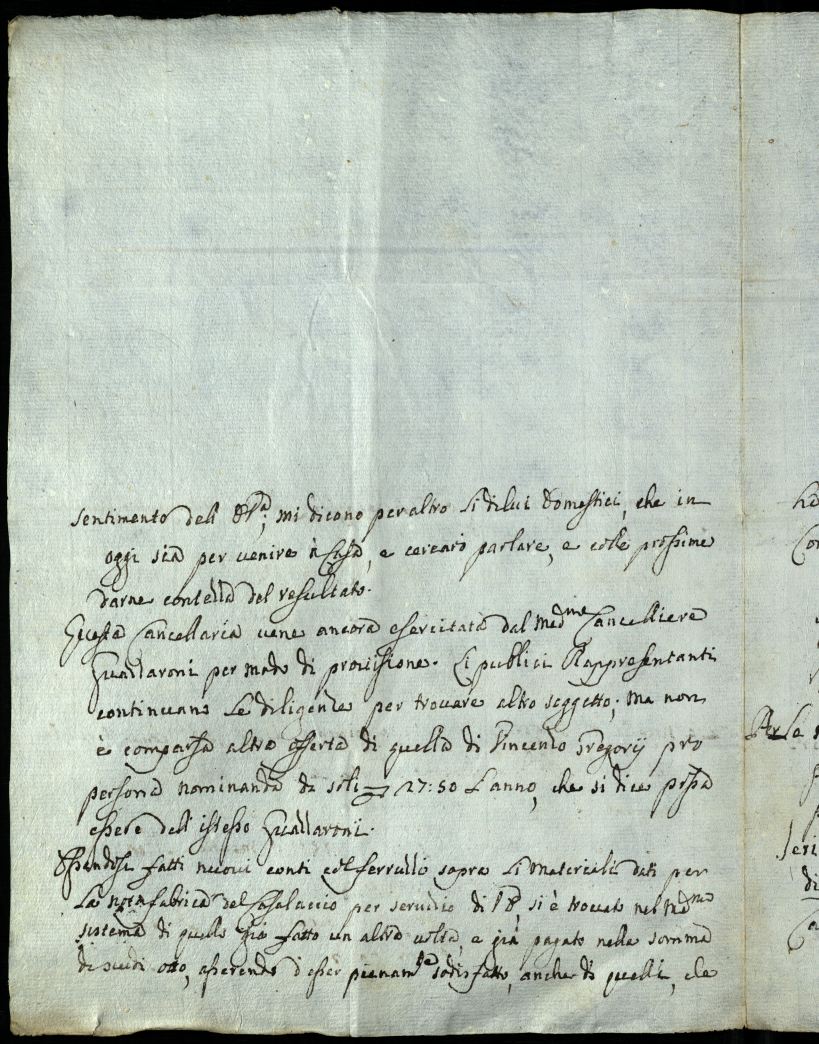 sentimento dell' ; mi dicono peraltro li di lui Domestici, che in
oggi sia per venire in Casa, e cercarò parlare, e colle prossime
darne contezza del resultato.
Questa Cancellaria viene ancora esercitata dal Med.mo Cancelliere
Guazzaroni per modo di provisione. Li publici Rappresentanti
continuano le diligenze per trovare altro soggetto; ma non
è comparsa altra offerta di quella di Vincenzo Gregorij pro
persona nominanda di soli 27:50 l'anno, che si dice
essere dell' istesso Guazzaroni.
Essendosi fatti nuovi conti col ferruccio sopra li materiali dati per
la nota fabrica del Casalaccio per servizio di si è trovato nel Med.mo
sistema di quello già fatto un altra volta, e già pagato nella somma
di scudi otto, asserendo d'esser pienam.te sodisfatto, anche di quelli, che
Per la